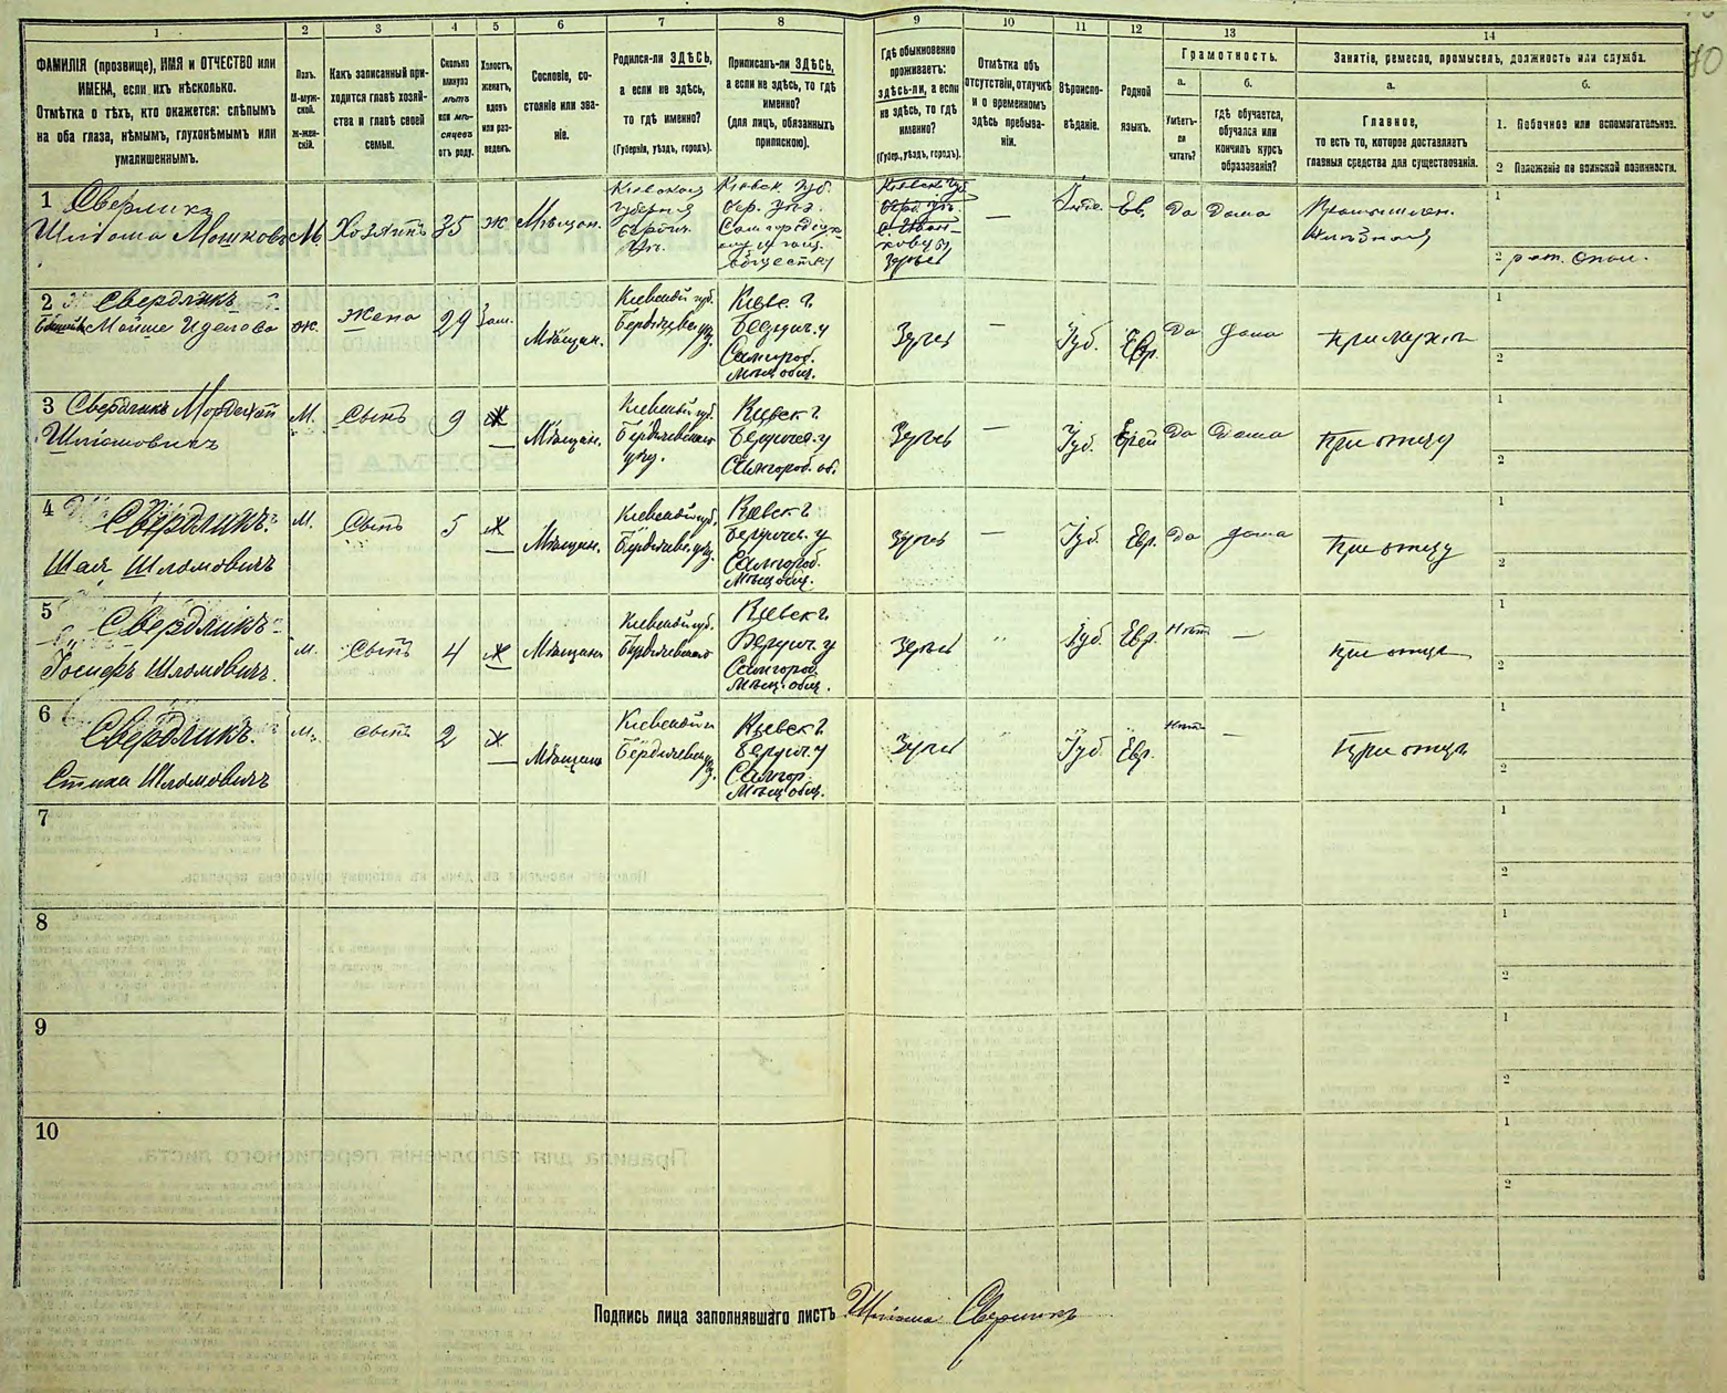 1
2
3
4
5
6
7
8
9
10
11
12
13
14
ФАМИЛІЯ (прозвище), ИМЯ и ОТЧЕСТВО или
ИМЕНА, если ихъ нѣсколько.
Отмѣтка о тѣхъ, кто окажется: слѣпымъ
на оба глаза, нѣмымъ, глухонѣмымъ или
умалишеннымъ.
Полъ.
М-муж-
ской.
ж-жен-
скій.
Какъ записанный при-
ходится главѣ хозяй-
ства и главѣ своей
семьи.
Сколько
минуло
лѣтъ
или мѣ-
сяцевъ
отъ роду.
Холостъ,
женатъ,
вдовъ
или раз-
веденъ.
Сословіе, со-
стояніе или зва-
ніе.
Родился-ли ЗДѢСЬ,
а если не здѣсь,
то гдѣ именно?
(Губернія, уѣздъ, городъ).
Приписанъ-ли ЗДѢСЬ,
а если не здѣсь, то гдѣ
именно?
(для лицъ, обязанныхъ
припискою).
Гдѣ обыкновенно
проживаетъ:
здѣсь-ли, а если
не здѣсь, то гдѣ
именно?
(Губер., уѣздъ, городъ).
Отмѣтка объ
отсутствіи, отлучкѣ
и о временномъ
здѣсь пребыва-
ніи.
Вѣроиспо-
вѣданіе.
Родной
языкъ.
Грамотность.
а.
Умѣетъ-
ли
читать?
б.
Гдѣ обучается,
обучался или
кончилъ курсъ
образованія?
Занятіе, ремесло, промыселъ, должность или служба.
а.
Главное,
то есть то, которое доставляетъ
главныя средства для существованія.
б.
1. Побочное или вспомогательное.
2 Положеніе по воинской повинности.
1 Сверликъ
Шліома Мошковъ М. Хозяинъ 35 Ж Мѣщан.
Кіевская
губернія
Кіевск. губ.
Да Дома
1
2
2 Свердликъ
Мойше Иделова ж. Жена 29 Зам. Мѣщан.
Кіевской губ.
Бердичев. у.
Кіевс. г.
Бердич. у
Самгород.
Мѣщ. общ.
Здѣсь — Іуд. Евр. Да Дома При мужѣ
1
2
3 Свердликъ Мордехай
Шліомовичъ
М. Сынъ 9 Ж Мѣщан.
Кіевской губ.
Бердичевскаго
уѣзд.
Кіевск г.
Бердичев. у
Самгород. об.
Здѣсь — Іуд. Еврей Да Дома При отцу
1
2
4 Свердликъ
Шая Шломовичъ
М. Сынъ 5 Ж Мѣщан.
Кіевской губ.
Бердичев. уѣзд.
Кіевск г
Бердичев. у
Самгород.
Мѣщ общ.
Здѣсь — Іуд. Евр. Да Дома При отцу
1
2
5 Свердликъ
Іосифъ Шломовичъ.
М. Сынъ 4 Ж Мѣщанъ
Кіевской губ.
Бердичевскаго
Кіевск г.
Бердич. у
Самгород.
Мѣщ. общ.
Здѣсь " Іуд. Евр. Нѣт — При отцѣ
1
2
6 Свердликъ.
Шломовичъ
М. сынъ 2 Ж Мѣщанъ
Кіевской г.
Бердичев. уѣз.
Кіевск г
Бердич. у
Самгор.
Мѣщ общ.
Здѣсь " Іуд. Евр. Нѣт — При отцѣ
1
2
7
1
2
8
1
2
9
1
2
10
1
2
Подпись лица заполнявшаго листъ Шліома Сверликъ